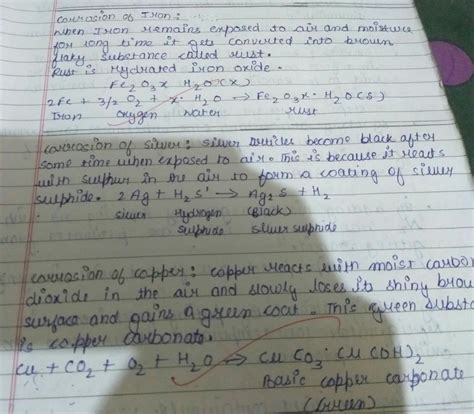 corrosion of Iron:
when Iron remains exposed to air and moisture
for long time it gets converted into brown
flaky substance called rust.
Rust is Hydrated iron oxide.
Fe2O3 x H2O (X)
2Fe + 3/2 O2 + x· H2O → Fe2O3 x· H2O (s)
Iron oxygen water rust
corrosion of silver: silver articles become black after
some time when exposed to air. This is because it reacts
with sulphur in the air to form a coating of silver
sulphide. 2Ag + H2S → Ag2S + H2
silver Hydrogen (Black)
sulphide silver sulphide
corrosion of copper: copper reacts with moist carbon
dioxide in the air and slowly loses its shiny brow
surface and gains a green coat. This green subst
is copper carbonate.
Cu + CO2 + O2 + H2O → CuCO3· Cu(OH)2
Basic copper carbonate
(Green)